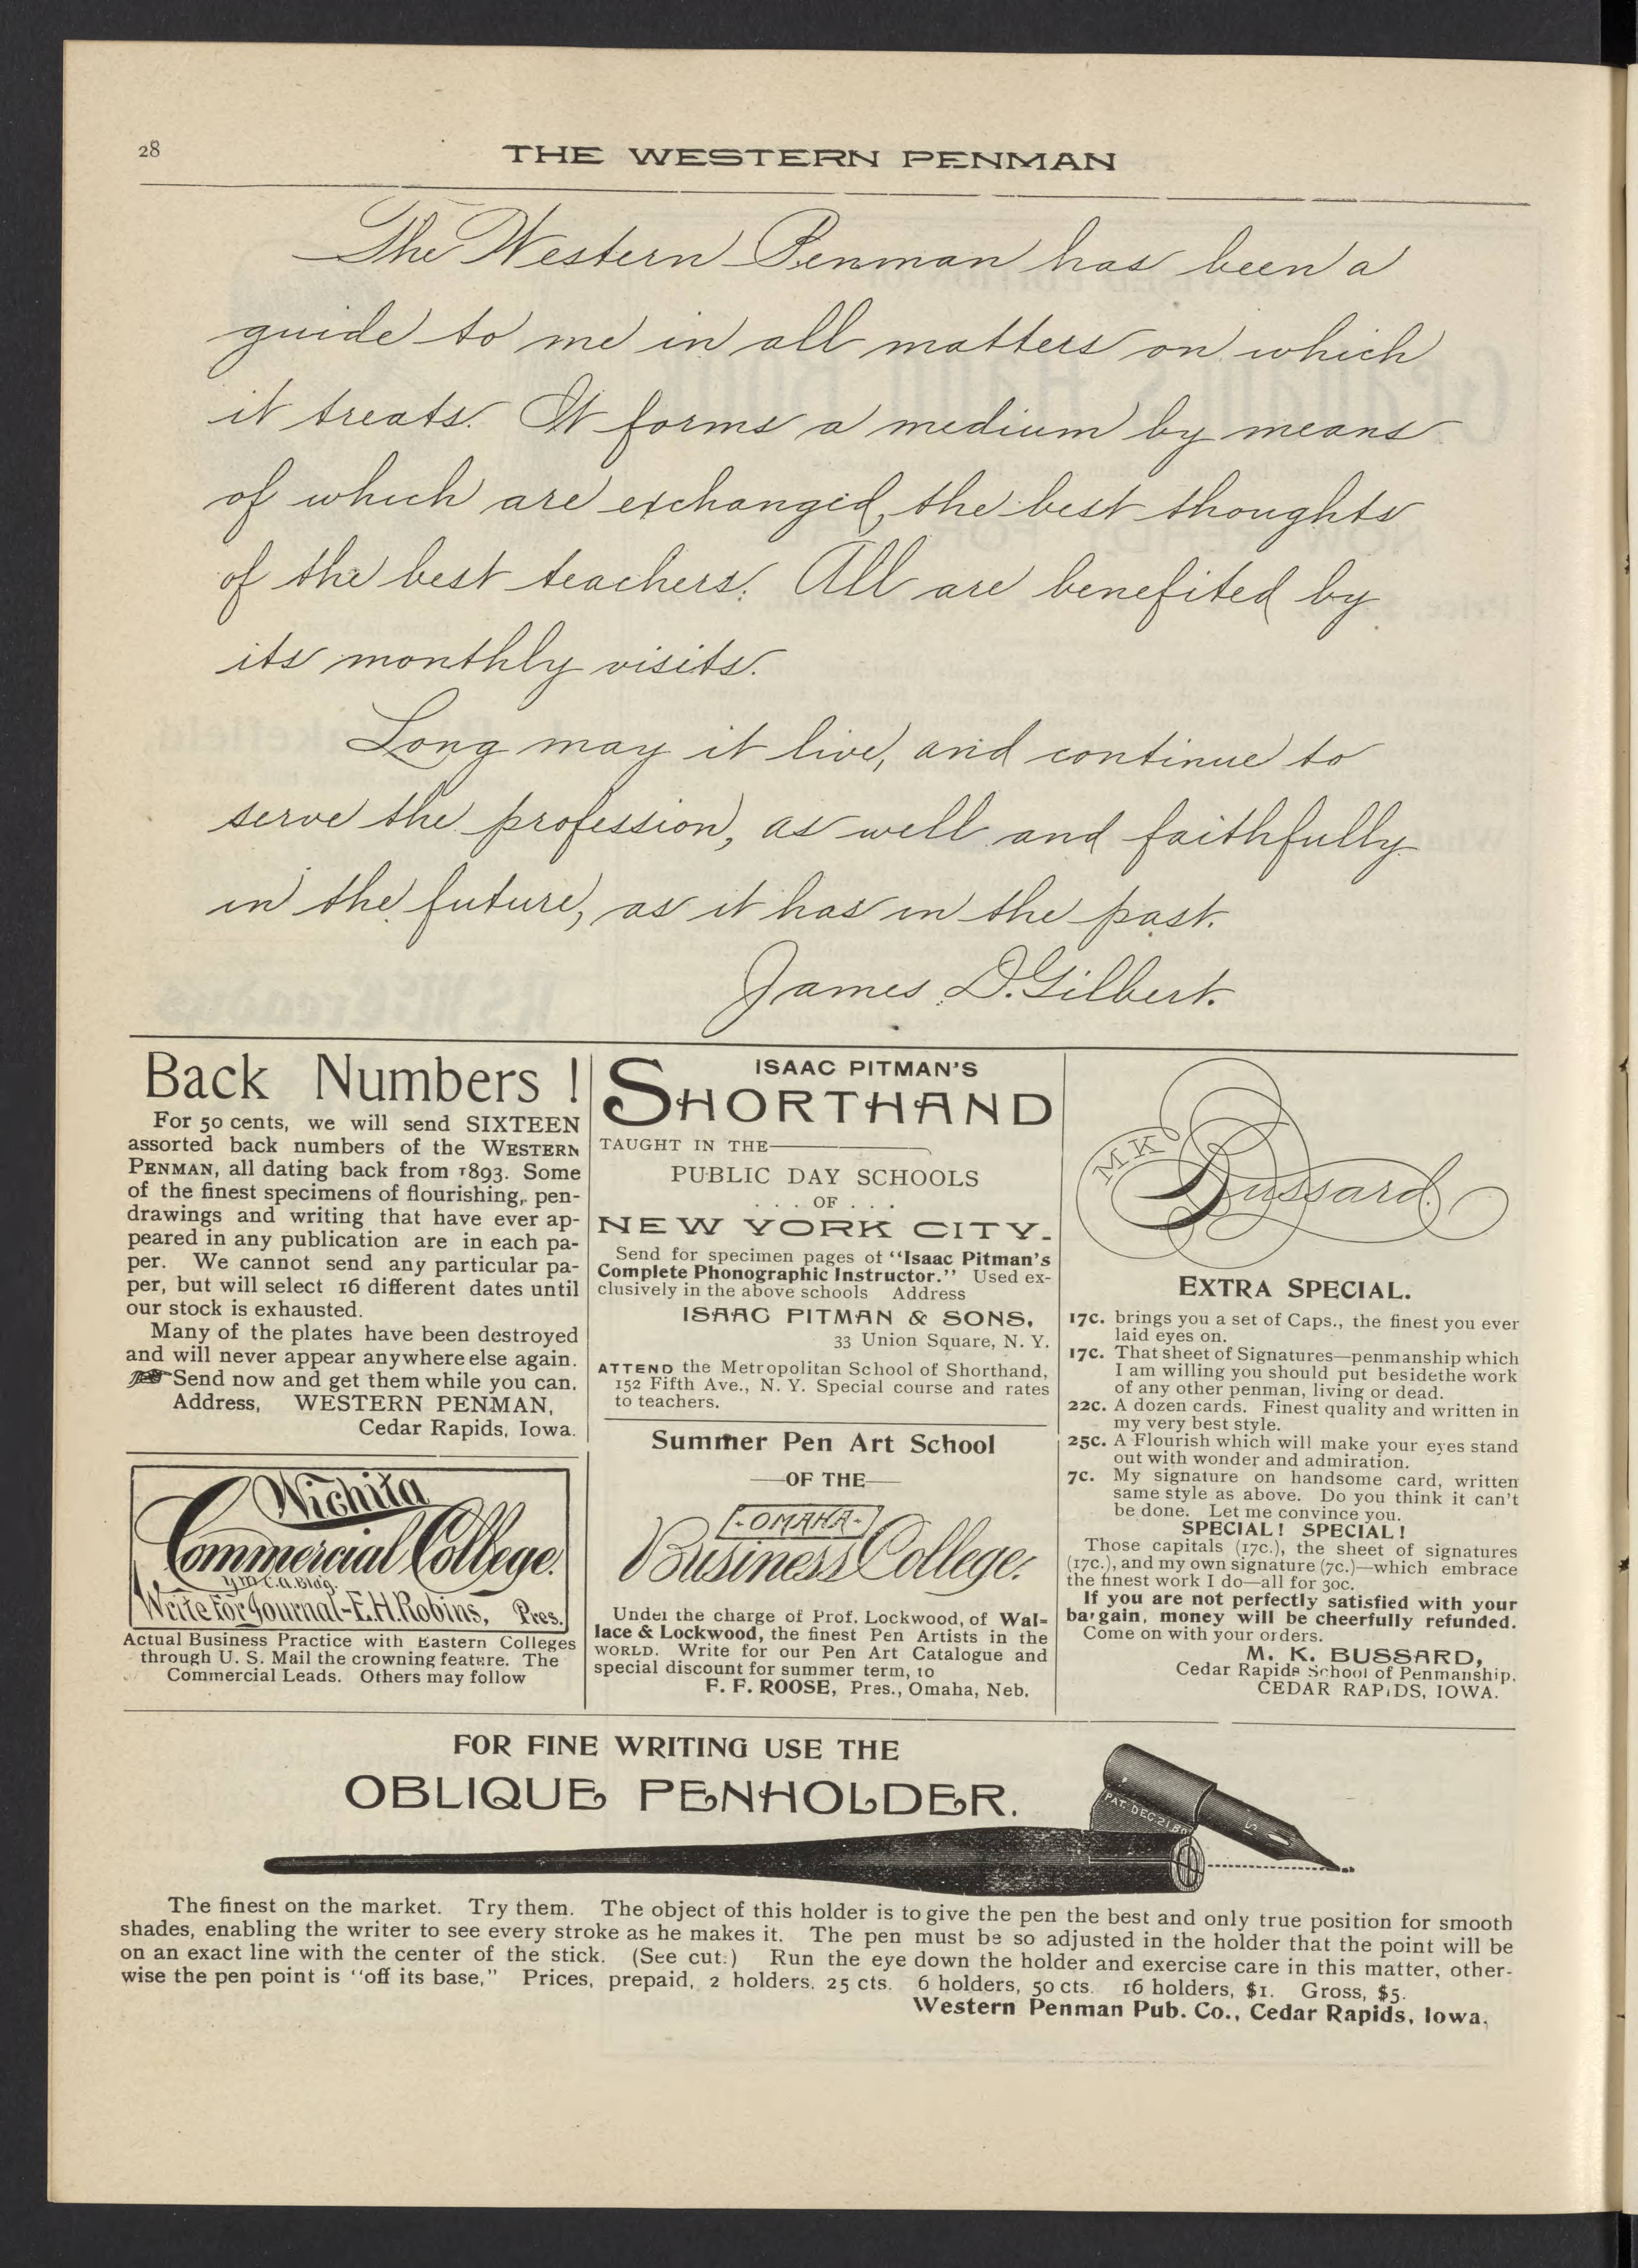 28
THE WESTERN PENMAN
The Western Penman has been a
guide to me in all matters on which
it treats. It forms a medium by means
of which are exchanged, the best thoughts
of the best teachers. All are benefited by
its monthly visits.
Long may it live, and continue to
serve the profession, as well and faithfully
in the future, as it has in the past.
James D. Gilbert.
Back Numbers!
For 50 cents, we will send SIXTEEN
assorted back numbers of the WESTERN
PENMAN, all dating back from 1893. Some
of the finest specimens of flourishing, pen-
drawings and writing that have ever ap-
peared in any publication are in each pa-
per. We cannot send any particular pa-
per, but will select 16 different dates until
our stock is exhausted.
Many of the plates have been destroyed
and will never appear anywhere else again.
Send now and get them while you can.
Address, WESTERN PENMAN,
Cedar Rapids, Iowa.
Wichita
Commercial College.
Y.M.C.A. Bldg.
Write For Journal-E.H. Robins, Pres.
Actual Business Practice with Eastern Colleges
through U. S. Mail the crowning feature. The
Commercial Leads. Others may follow
ISAAC PITMAN'S
SHORTHAND
TAUGHT IN THE
PUBLIC DAY SCHOOLS
. . . OF . . .
NEW YORK CITY.
Send for specimen pages of "Isaac Pitman's
Complete Phonographic Instructor." Used ex-
clusively in the above schools Address
ISAAC PITMAN & SONS,
33 Union Square, N. Y.
ATTEND the Metropolitan School of Shorthand,
152 Fifth Ave., N. Y. Special course and rates
to teachers.
Summer Pen Art School
—OF THE—
-OMAHA-
Business College.
Under the charge of Prof. Lockwood, of Wal-
lace & Lockwood, the finest Pen Artists in the
WORLD. Write for our Pen Art Catalogue and
special discount for summer term, to
F. F. ROOSE, Pres., Omaha, Neb.
M K
Bussard.
EXTRA SPECIAL.
17C. brings you a set of Caps., the finest you ever
laid eyes on.
17C. That sheet of Signatures—penmanship which
I am willing you should put besidethe work
of any other penman, living or dead.
22C. A dozen cards. Finest quality and written in
my very best style.
25C. A Flourish which will make your eyes stand
out with wonder and admiration.
7C. My signature on handsome card, written
same style as above. Do you think it can't
be done. Let me convince you.
SPECIAL! SPECIAL!
Those capitals (17c.), the sheet of signatures
(17c.), and my own signature (7c.)—which embrace
the finest work I do—all for 30c.
If you are not perfectly satisfied with your
bargain, money will be cheerfully refunded.
Come on with your orders.
M. K. BUSSARD,
Cedar Rapids School of Penmanship.
CEDAR RAPIDS, IOWA.
FOR FINE WRITING USE THE
OBLIQUE PENHOLDER.
PAT. DEC. 21.80
The finest on the market. Try them. The object of this holder is to give the pen the best and only true position for smooth
shades, enabling the writer to see every stroke as he makes it. The pen must be so adjusted in the holder that the point will be
on an exact line with the center of the stick. (See cut.) Run the eye down the holder and exercise care in this matter, other-
wise the pen point is "off its base," Prices, prepaid, 2 holders, 25 cts. 6 holders, 50 cts. 16 holders, $1. Gross, $5.
Western Penman Pub. Co., Cedar Rapids, Iowa.